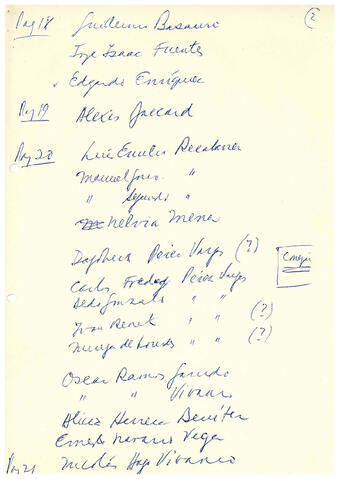 (2)
Pag 18 Guillermo Basauri
Jorge Isaac Fuentes
Edgardo Enríquez
Pag 19 Alexis Jaccard
Pag 20 Luis Emilio Recabarren
Manuel "
" Segundo "
Nelvia Mena
Dagoberto Perez Vargas (?)
Carlos Freddy Perez Vargas
Aldo Gonzalo " "
Ivan Renet " " (?)
Mireya de Lourdes " " (?)
Oscar Ramos Garrido
" " Vivanco
Alicia Herrera Benítez
Ernesto Navarro Vega
Pag 21 Nicolás Hugo Vivanco